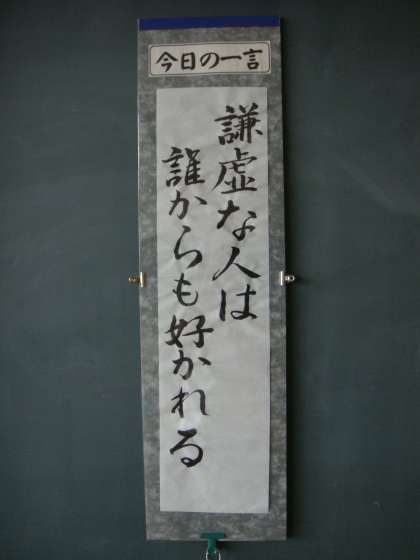 今日の一言
謙虚な人は
誰からも好かれる